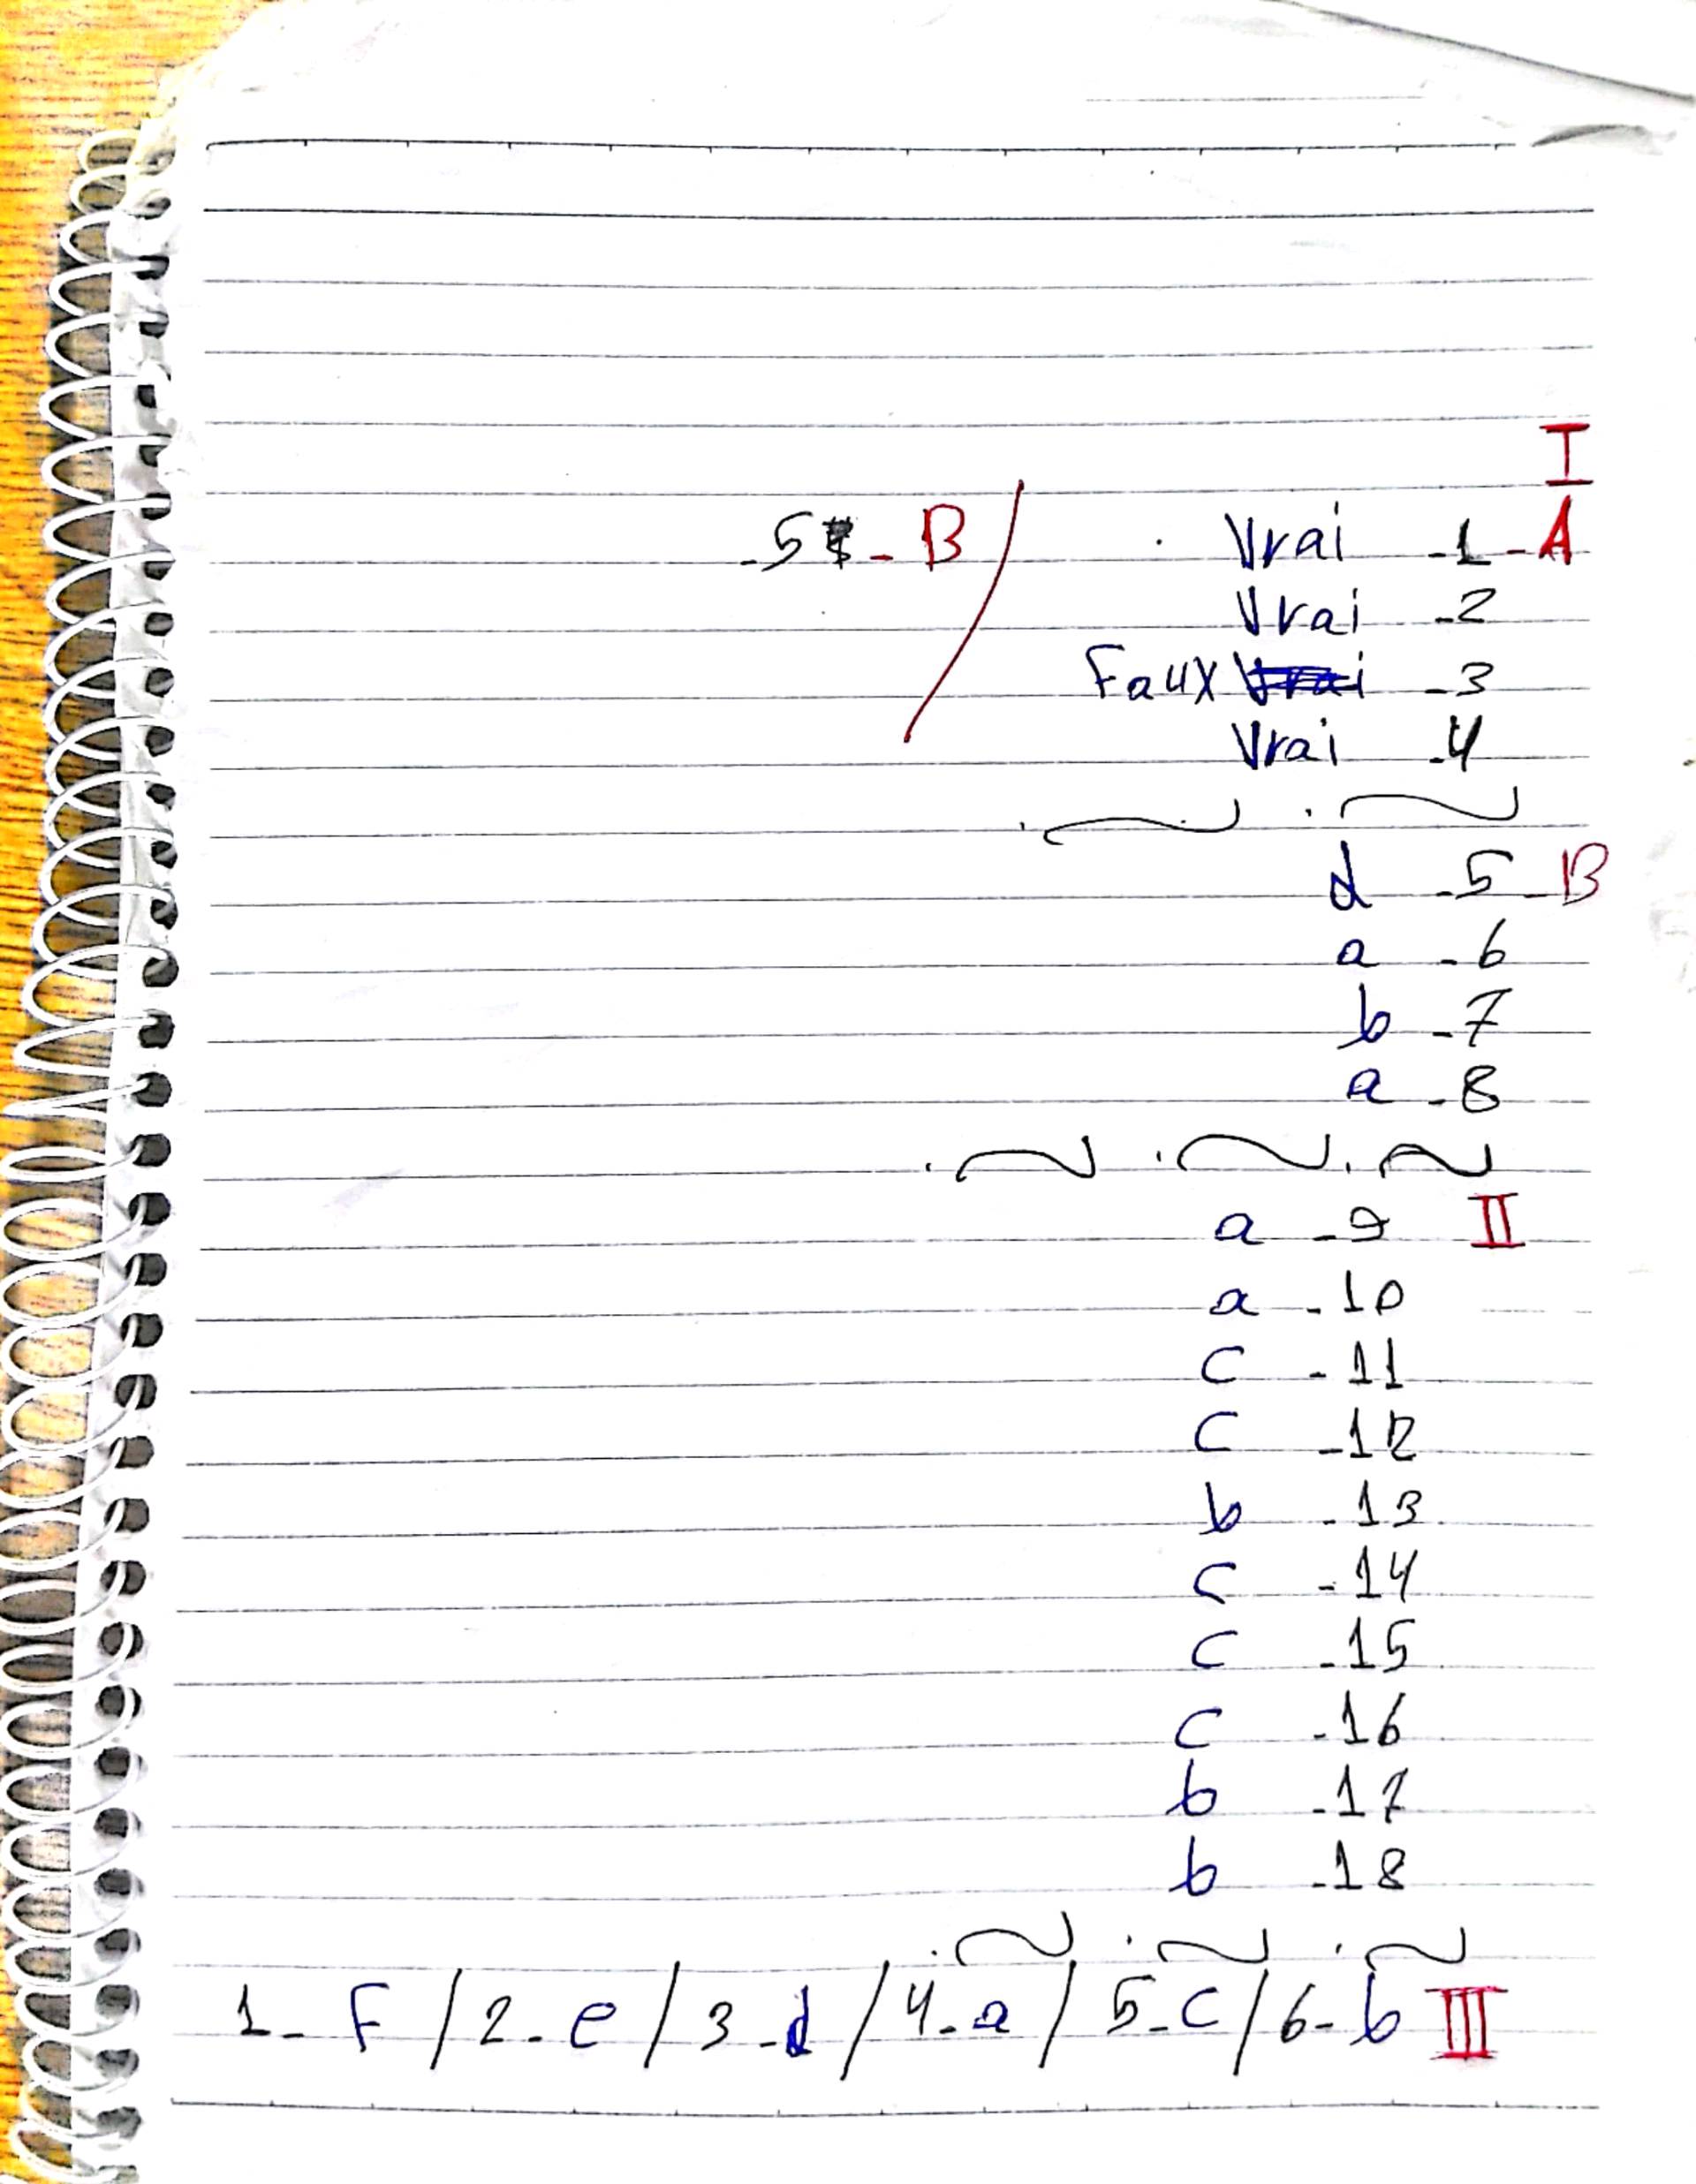 I
A - 1 - Vrai
B - 5 -
2 - Vrai
3 - Vrai Faux
4 - Vrai
B - 5 - d
6 - a
7 - b
8 - a
II 9 - a
10 - a
11 - c
12 - c
13 - b
14 - c
15 - c
16 - c
17 - b
18 - b
III 1 - F / 2 - e / 3 - d / 4 - a / 5 - c / 6 - b